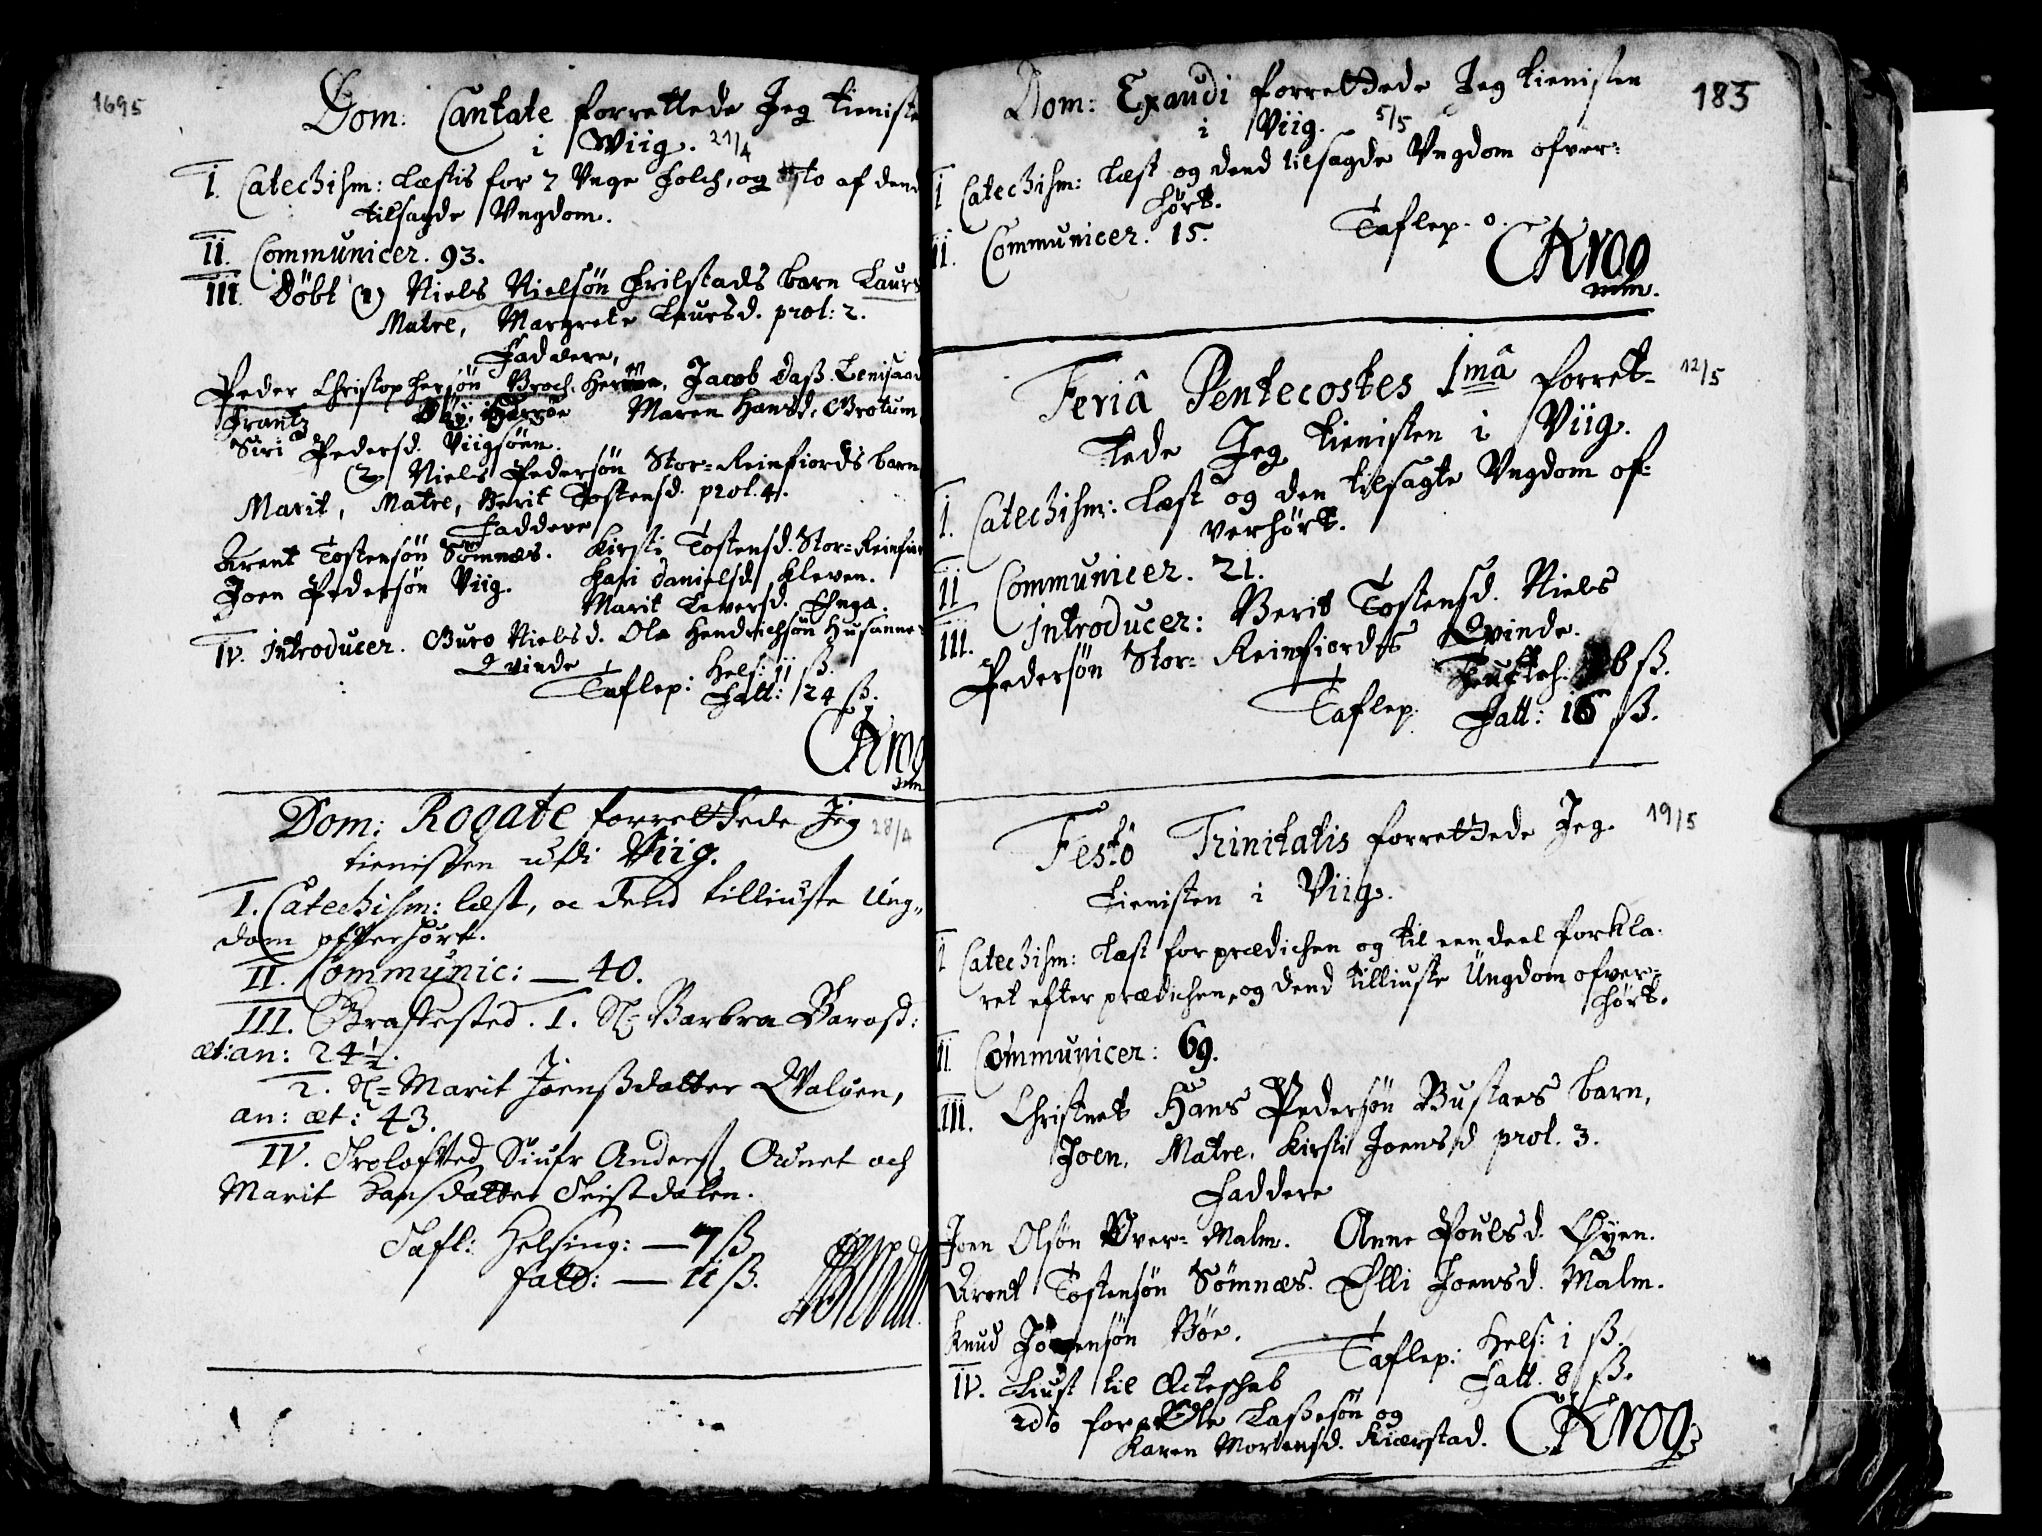 1695
Dom: Cantate forrettede Jeg tieniste
i Wiig. 21/4
I. Catechism: Læstis for 2 Unge Folch, og to af dend
tilsagde Ungdom.
II. Communicer. 93.
III. Döbt (1) Niels Nielsön Hrilstads barn Laurs
Matre, Margrete Laursd. prol: 2.
Faddere,
Peder Christophersön Broch. Jacob Daß.
Frantz Maren Hansd. Grotum
Siri Pedersd. Viigsöen.
(2) Niels Pedersön Stor-Reinfiords barn
Marit, Matre, Berit Tostensd. prol. 4.
Faddere
Arent Tostensön Sömnæs. Kirsti Tostensd. Stor-Reinfior
Joen Pedersön Viig. Kari Danielsd Kleven.
Marit Leversd. Enga.
IV. Introducer. Guro Nielsd. Ole Hendrichsön Husanne
Qvinde
Taflep: Hels: 11 ß.
Fatt: 24 ß.
CKrog
mm
Dom: Rogate forrettede Jeg 28/4
tienisten udi Viig.
I. Catechism: læst, oc dend tilliuste Ung„
dom offverhört.
II. Communic: — 40.
III. Graffested. 1. Sl= Barbra Barosd:
æt: an: 24½.
2. Sl= Marit Joensdatter Qvalöen,
an: æt: 43.
IV. Troloffted Siufr Anders Ouret och
Marit Hansdatter Treistdalen.
Tafl: Helsing: — 7 ß
fatt: — 11 ß.
183
Dom: Exaudi forrettede Jeg tienisten
i Viig. 5/5
I Catechism: Læst og dend tilsagde Ungdom ofver=
hört.
II. Communicer. 15. Taflep. 0.
CKrog
mm.
Feriâ Pentecostes 1mâ forret= 12/5
tede Jeg tienisten i Viig.
I. Catechism: Læst og den tilsagte Ungdom of=
verhört.
II Communicer. 21.
III. Introducer: Berit Tostensd. Niels
Pedersön Stor-Reinfiords Qvinde.
Taflep. 6 ß.
Fatt: 16 ß.
Festo Trinitatis forrettede Jeg 19/5
tienisten i Viig.
I Catechism: Læst for prædichen og til een deel forkla-
ret efter prædichen, og dend tilliuste Ungdom ofver=
hört.
II. Communicer: 69.
III. Christnet Hans Pedersön Bustaes barn,
Joen, Matre, Kirsti Joensd prol. 3.
Faddere
Joen Olsön Över-Malm. Anne Poulsd. Öyen.
Arent Tostensön Sömnæs. Elli Joensd. Malm.
Knud Jörgensön Böe. Taflep: Hels: 1 ß.
Fatt. 8 ß.
IV. Liust til Ecteschab
2do for Ole Laßesön og
Karen Mortensd. Kiærstad. CKrog